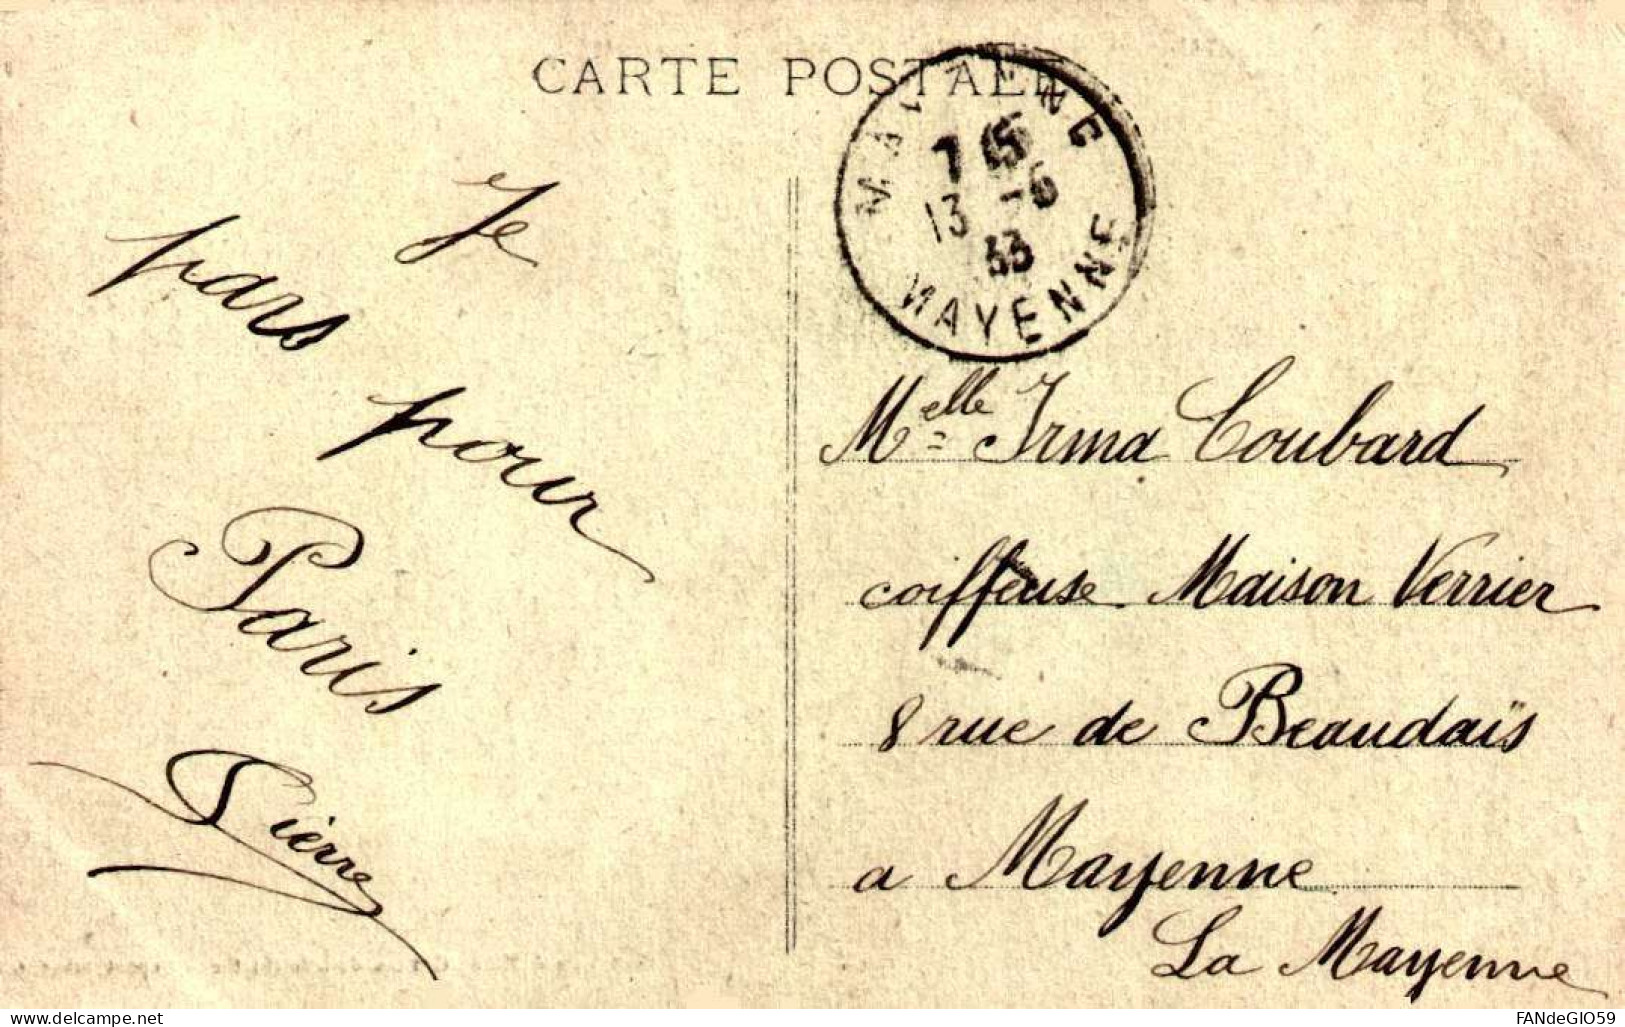 CARTE POSTALE
MAYENNE
7 15
13 -6
33
MAYENNE
Je
pars
pour
Paris
Pierre
Melle Irma Coubard
coiffeuse Maison Verrier
8 rue de Beaudais
a Mayenne
La Mayenne
www.delcampe.net
FANdeGIO59